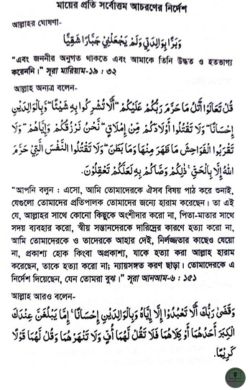 মায়ের প্রতি সর্বোত্তম আচরণের নির্দেশ
আল্লাহর ঘোষণা-
وَبَرًّا بِوَالِدَتِي وَلَمْ يَجْعَلْنِي جَبَّارًا شَقِيًّا
"এবং জননীর অনুগত থাকতে এবং আমাকে তিনি উদ্ধত ও হতভাগ্য
করেননি।" সূরা মারিয়াম-১৯ : ৩২
আল্লাহ অন্যত্র বলেন-
قُلْ تَعَالَوْا أَتْلُ مَا حَرَّمَ رَبُّكُمْ عَلَيْكُمْ أَلَّا تُشْرِكُوا بِهِ شَيْئًا وَبِالْوَالِدَيْنِ
إِحْسَانًا وَلَا تَقْتُلُوا أَوْلَادَكُمْ مِنْ إِمْلَاقٍ نَحْنُ نَرْزُقُكُمْ وَإِيَّاهُمْ وَلَا
تَقْرَبُوا الْفَوَاحِشَ مَا ظَهَرَ مِنْهَا وَمَا بَطَنَ وَلَا تَقْتُلُوا النَّفْسَ الَّتِي حَرَّمَ
اللَّهُ إِلَّا بِالْحَقِّ ذَلِكُمْ وَصَّاكُمْ بِهِ لَعَلَّكُمْ تَعْقِلُونَ
"আপনি বলুন : এসো, আমি তোমাদেরকে ঐসব বিষয় পাঠ করে শুনাই,
যেগুলো তোমাদের প্রতিপালক তোমাদের জন্যে হারাম করেছেন। তা এই
যে, আল্লাহর সাথে কোনো কিছুকে অংশীদার করো না, পিতা-মাতার সাথে
সদয় ব্যবহার করো, স্বীয় সন্তানদেরকে দারিদ্রের কারণে হত্যা করো না,
আমি তোমাদেরকে ও তাদেরকে আহার দেই, নির্লজ্জতার কাছেও যেয়ো
না, প্রকাশ্য হোক কিংবা অপ্রকাশ্য, যাকে হত্যা করা আল্লাহ হারাম
করেছেন, তাকে হত্যা করো না; ন্যায়সঙ্গত কারণ ছাড়া। তোমাদেরকে এ
নির্দেশ দিয়েছেন, যেন তোমরা বুঝ।" সূরা আনআম-৬ : ১৫১
আল্লাহ আরও বলেন-
وَقَضَى رَبُّكَ أَلَّا تَعْبُدُوا إِلَّا إِيَّاهُ وَبِالْوَالِدَيْنِ إِحْسَانًا إِمَّا يَبْلُغَنَّ عِنْدَكَ
الْكِبَرَ أَحَدُهُمَا أَوْ كِلَاهُمَا فَلَا تَقُلْ لَهُمَا أُفٍّ وَلَا تَنْهَرْهُمَا وَقُلْ لَهُمَا قَوْلًا
كَرِيمًا